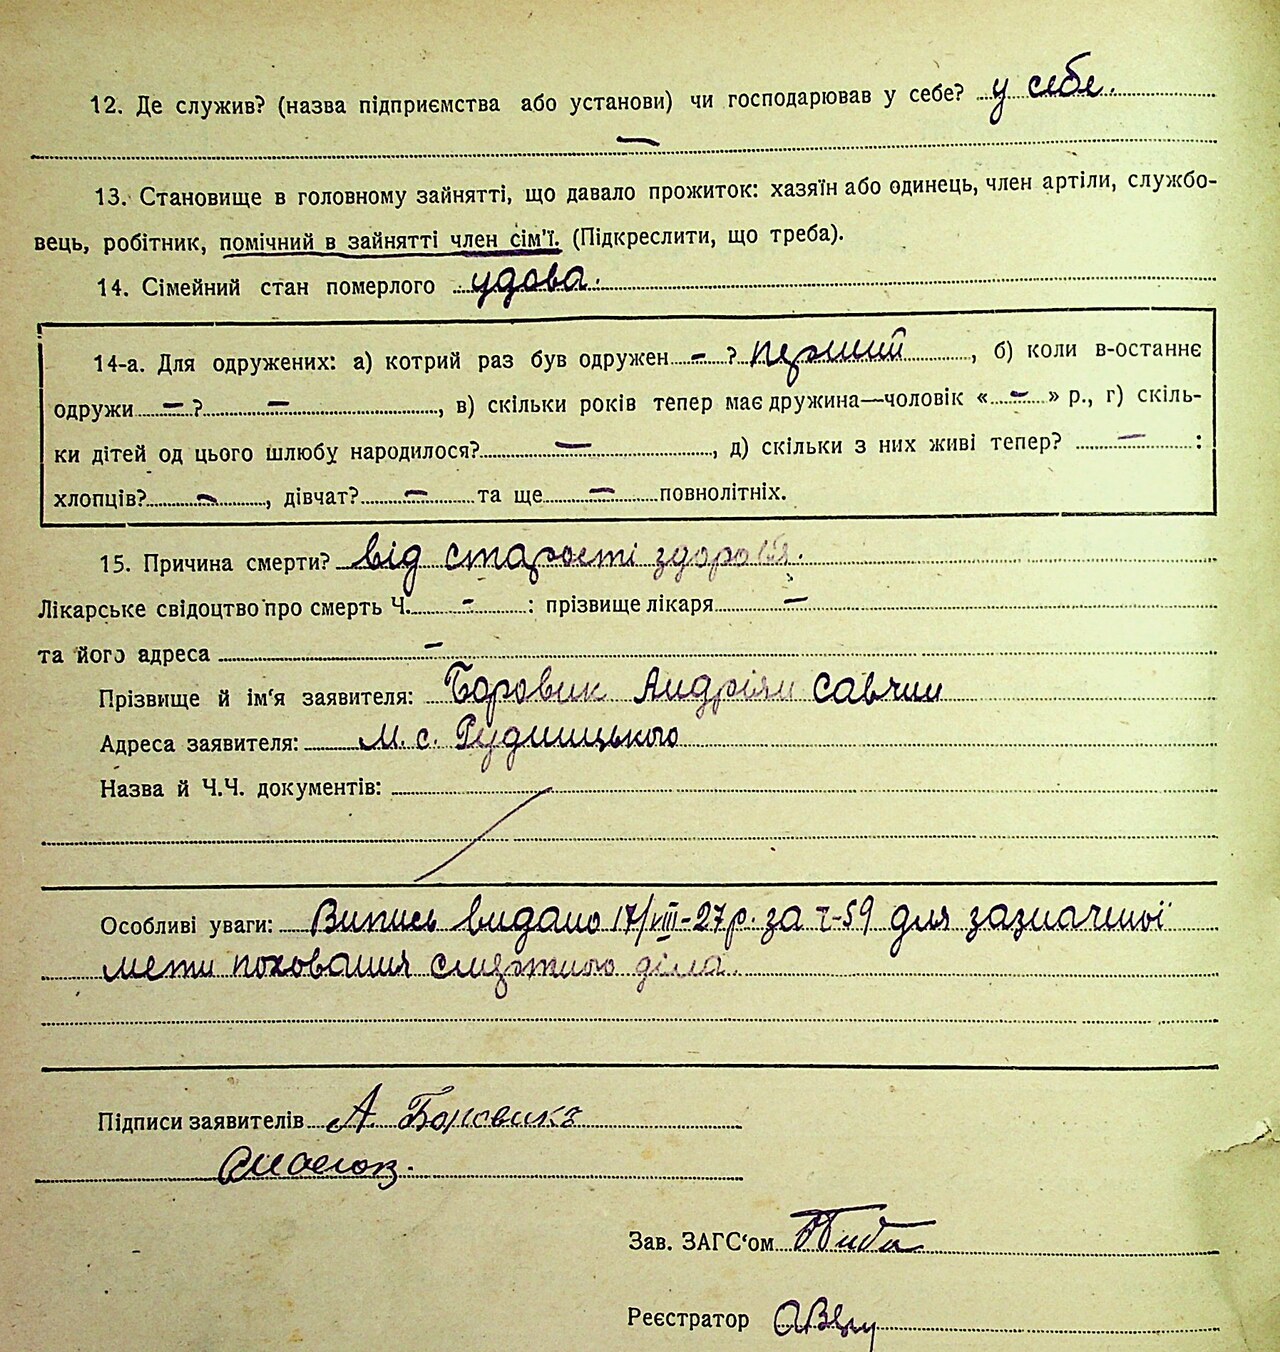 12. Де служив? (назва підприємства або установи) чи господарював у себе? у себе.
—
13. Становище в головному зайнятті, що давало прожиток: хазяїн або одинець, член артілі, службо-
вець, робітник, помічний в зайнятті член сім'ї. (Підкреслити, що треба).
14. Сімейний стан померлого удова.
14-а. Для одружених: а) котрий раз був одружен – ? перший, б) коли в-останнє
одружи – ? –, в) скільки років тепер має дружина—чоловік «–» р., г) скіль-
ки дітей од цього шлюбу народилося? –, д) скільки з них живі тепер? – :
хлопців? –, дівчат? – та ще – повнолітніх.
15. Причина смерти? від старості здоровія.
Лікарське свідоцтво про смерть Ч. - : прізвище лікаря –
та його адреса –
Прізвище й ім'я заявителя: Боровик Андріян Савчин
Адреса заявителя: м. с. Рудницького
Назва й Ч.Ч. документів:
Особливі уваги: Випись видано 17/VIII-27р. за ч-59 для зазначиої
мети поховання діла.
Підписи заявителів А. Боровикъ
Зав. ЗАГС'ом
Реєстратор